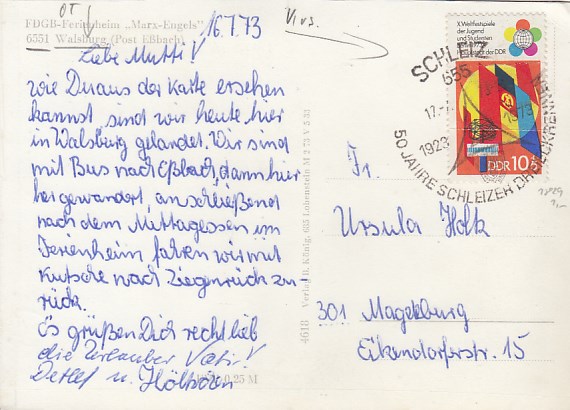 OT
FDGB-Ferienheim „Marx-Engels"
6551 Walsburg (Post Eßbach)
16.7.73
Liebe Mutti!
wie Du aus der Karte ersehen
kannst sind wir heute hier
in Walsburg gelandet. Wir sind
mit Bus nach Eßbach, dann hier-
her gewandert, anschließend
nach dem Mittagessen im
Ferienheim fahren wir mit
Kutsche nach Ziegenrück zu-
rück.
Es grüßen Dich recht lieb
die Urlauber Vati!
Detlef u.
0,25 M
4618 Verlag H. König, 685 Lobenstein M 2 73 V 5 51
X. Weltfestspiele
der Jugend
und Studenten
Hauptstadt der DDR
DDR 10+5
SCHLEIZ
655
17.7.
1973
1923
50 JAHRE SCHLEIZER DREIECKRENNEN
Fr.
Ursula Holk
301 Magdeburg
Eikendorferstr. 15